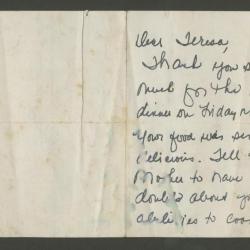 Dear Teresa,
Thank you s
much for the
dinner on Friday n
Your food was
delicious. Tell
Mother to have
doubts about yo
abilities to coo